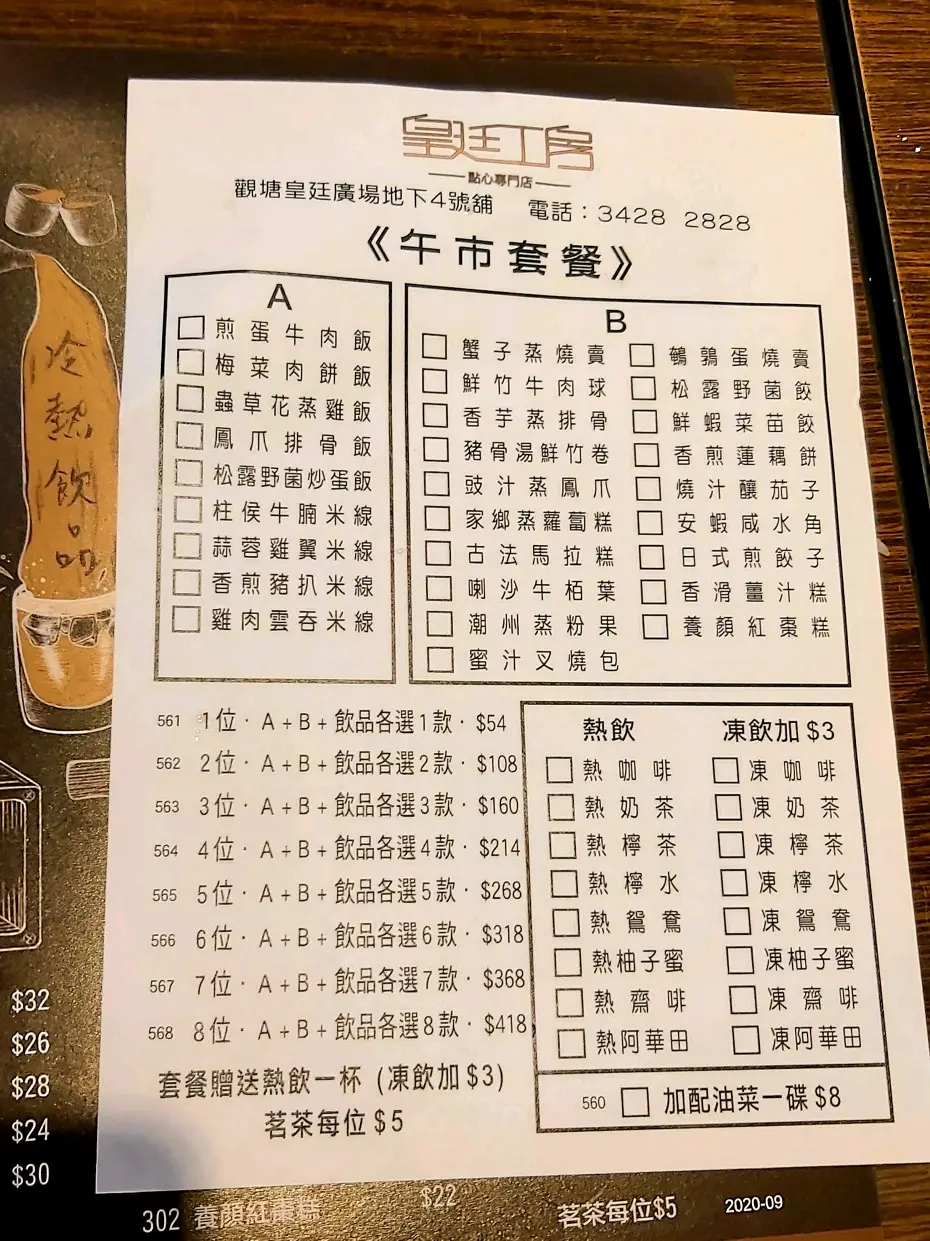 皇廷工房
點心專門店
觀塘皇廷廣場地下4號舖 電話：3428 2828
《午市套餐》
A
煎蛋牛肉飯
梅菜肉餅飯
蟲草花蒸雞飯
鳳爪排骨飯
松露野菌炒蛋飯
柱侯牛腩米線
蒜蓉雞翼米線
香煎豬扒米線
雞肉雲吞米線
B
蟹子蒸燒賣
鮮竹牛肉球
香芋蒸排骨
豬骨湯鮮竹卷
豉汁蒸鳳爪
家鄉蒸蘿蔔糕
古法馬拉糕
喇沙牛栢葉
潮州蒸粉果
蜜汁叉燒包
鵪鶉蛋燒賣
松露野菌餃
鮮蝦菜苗餃
香煎蓮藕餅
燒汁釀茄子
安蝦咸水角
日式煎餃子
香滑薑汁糕
養顏紅棗糕
561 1位· A+B+飲品各選1款· $54
562 2位· A+B+飲品各選2款· $108
563 3位· A+B+飲品各選3款· $160
564 4位· A+B+飲品各選4款· $214
565 5位· A+B+飲品各選5款· $268
566 6位· A+B+飲品各選6款· $318
567 7位· A+B+飲品各選7款· $368
568 8位· A+B+飲品各選8款· $418
套餐贈送熱飲一杯 (凍飲加$3)
茗茶每位$5
熱飲
熱咖啡
熱奶茶
熱檸茶
熱檸水
熱鴛鴦
熱柚子蜜
熱齋啡
熱阿華田
凍飲加$3
凍咖啡
凍奶茶
凍檸茶
凍檸水
凍鴛鴦
凍柚子蜜
凍齋啡
凍阿華田
560 加配油菜一碟$8
冷熱飲品
$32
$26
$28
$24
$30
302 養顏紅棗糕 $22
茗茶每位$5 2020-09